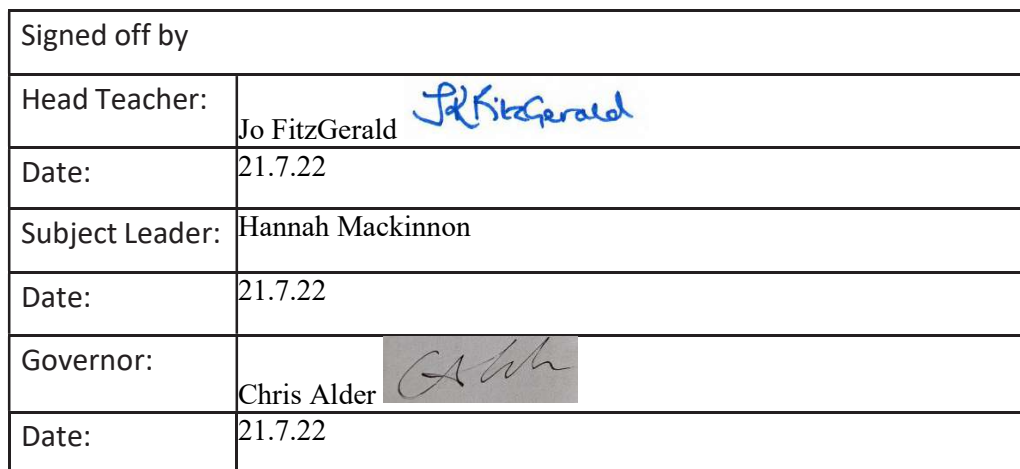 Signed off by
Head Teacher: Jo FitzGerald JK FitzGerald
Date: 21.7.22
Subject Leader: Hannah Mackinnon
Date: 21.7.22
Governor: Chris Alder
Date: 21.7.22